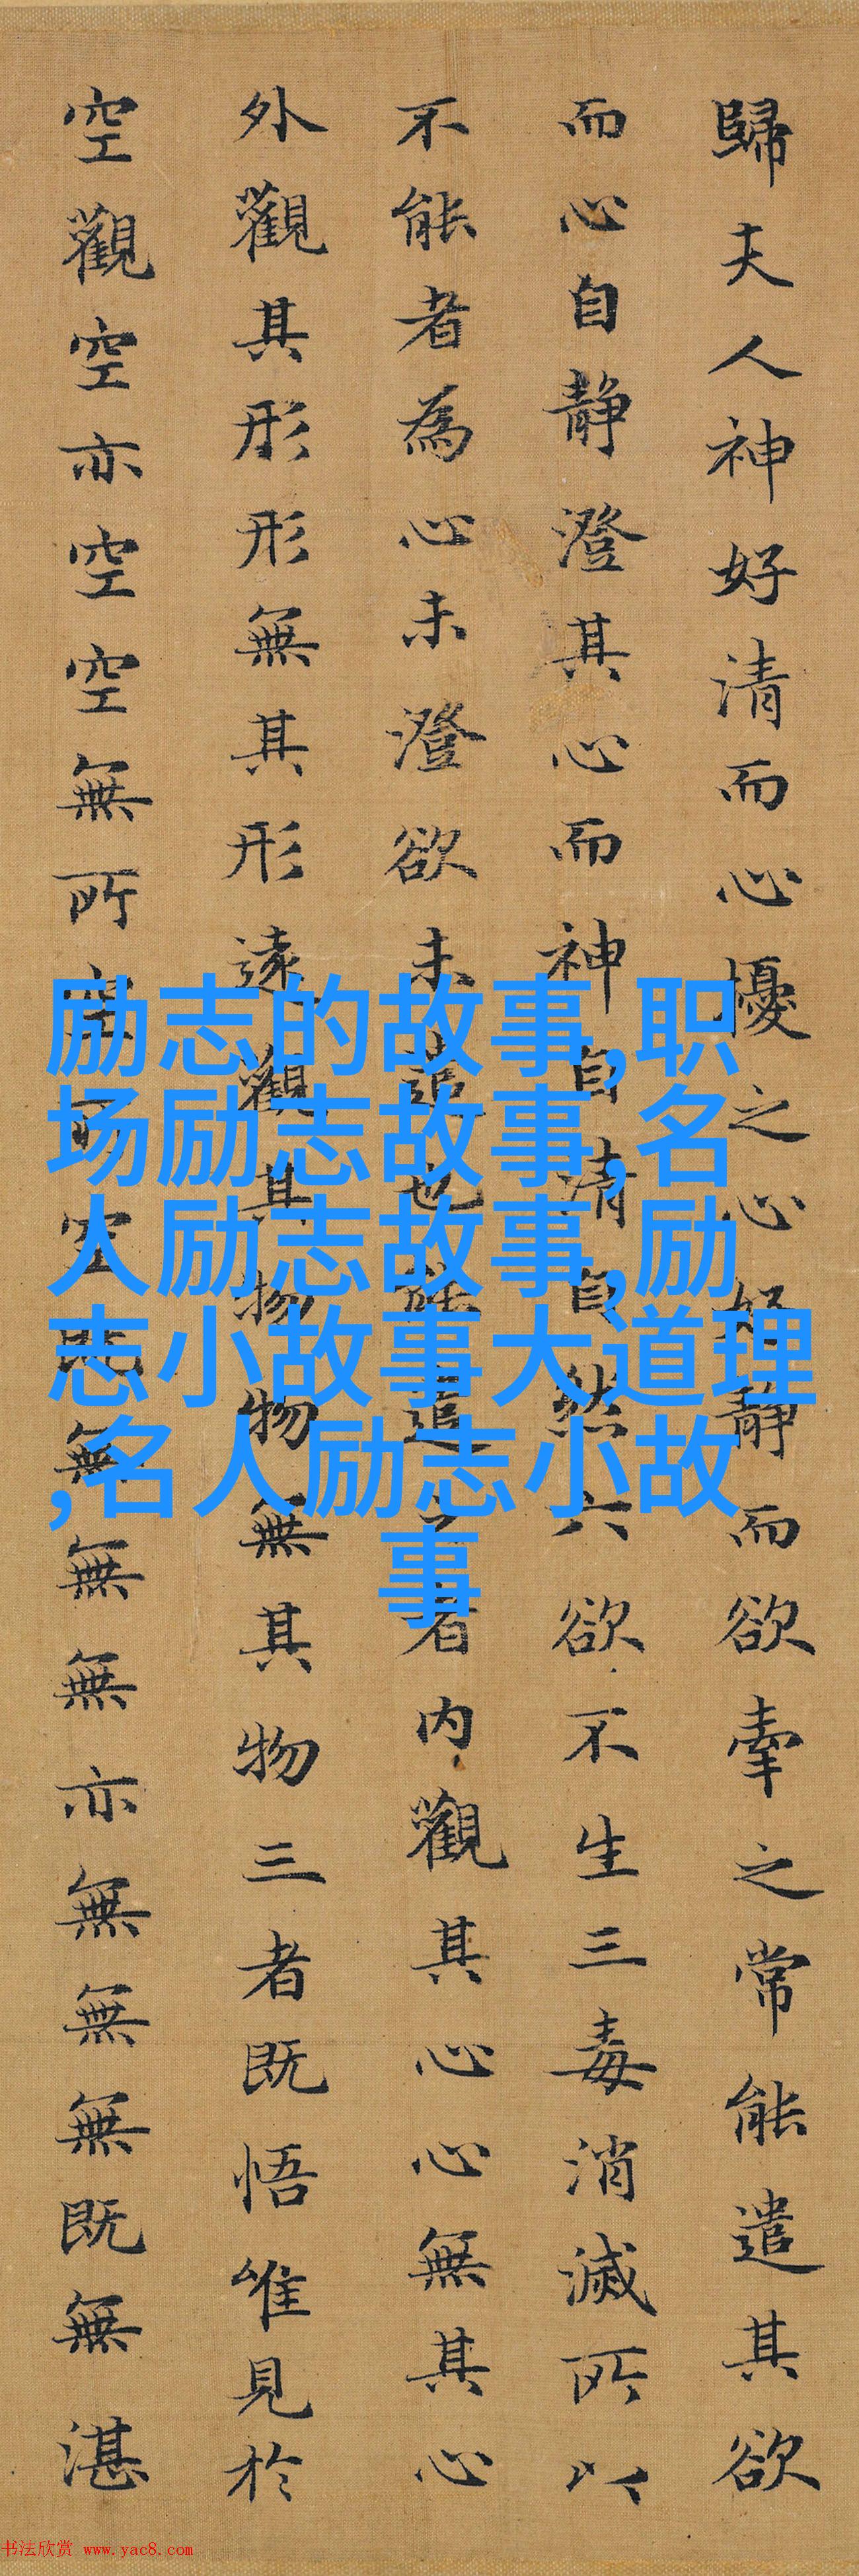 歸夫人神好清而心擾之心好静而欲牽之常能遣其欲
而心自静澄其心而神自清自然六欲不生三毒消滅所以
不能者為心未澄欲未遣也能遣之者内觀其心心無其心
外觀其形形無其形遠觀其物物無其物三者既悟唯見於
空觀空亦空空無所空所空既無無無亦無無無既無湛
励志的故事,职
场励志故事,名
人励志故事,励
志小故事大道理
,名人励志小故
事
书法欣赏 www.yac8.com